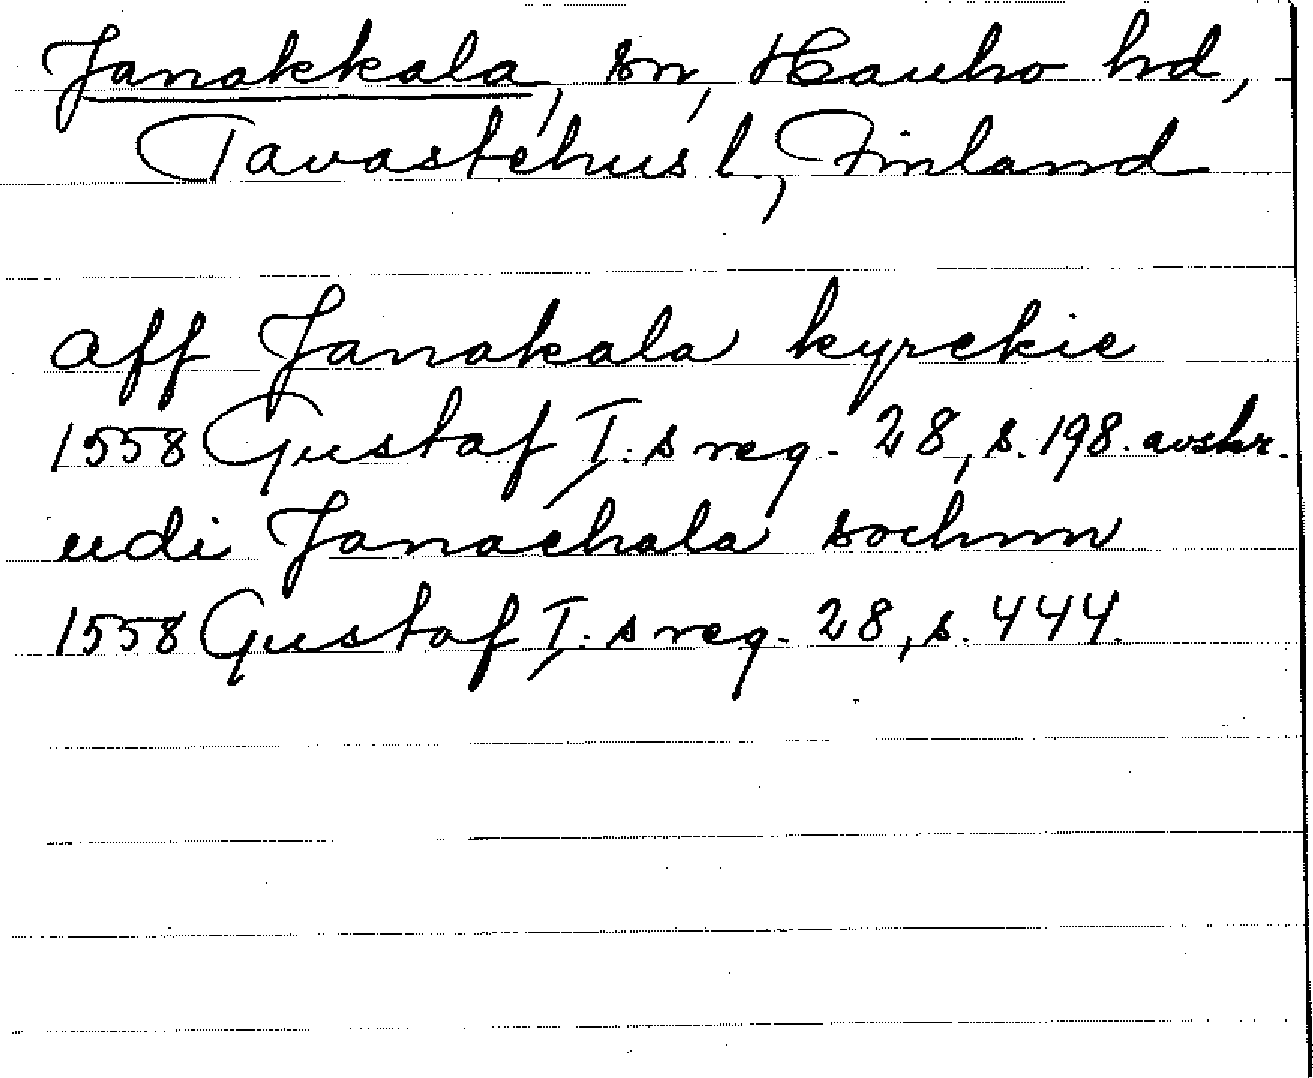 Janakkala, sn, Hauho hd,
Tavastehus l., Finland
aff Janakala kyrckie
1558 Gustaf I:s reg. 28, s. 198. avskr.
udi Janachala sochnn
1558 Gustaf I:s reg. 28, s. 444.